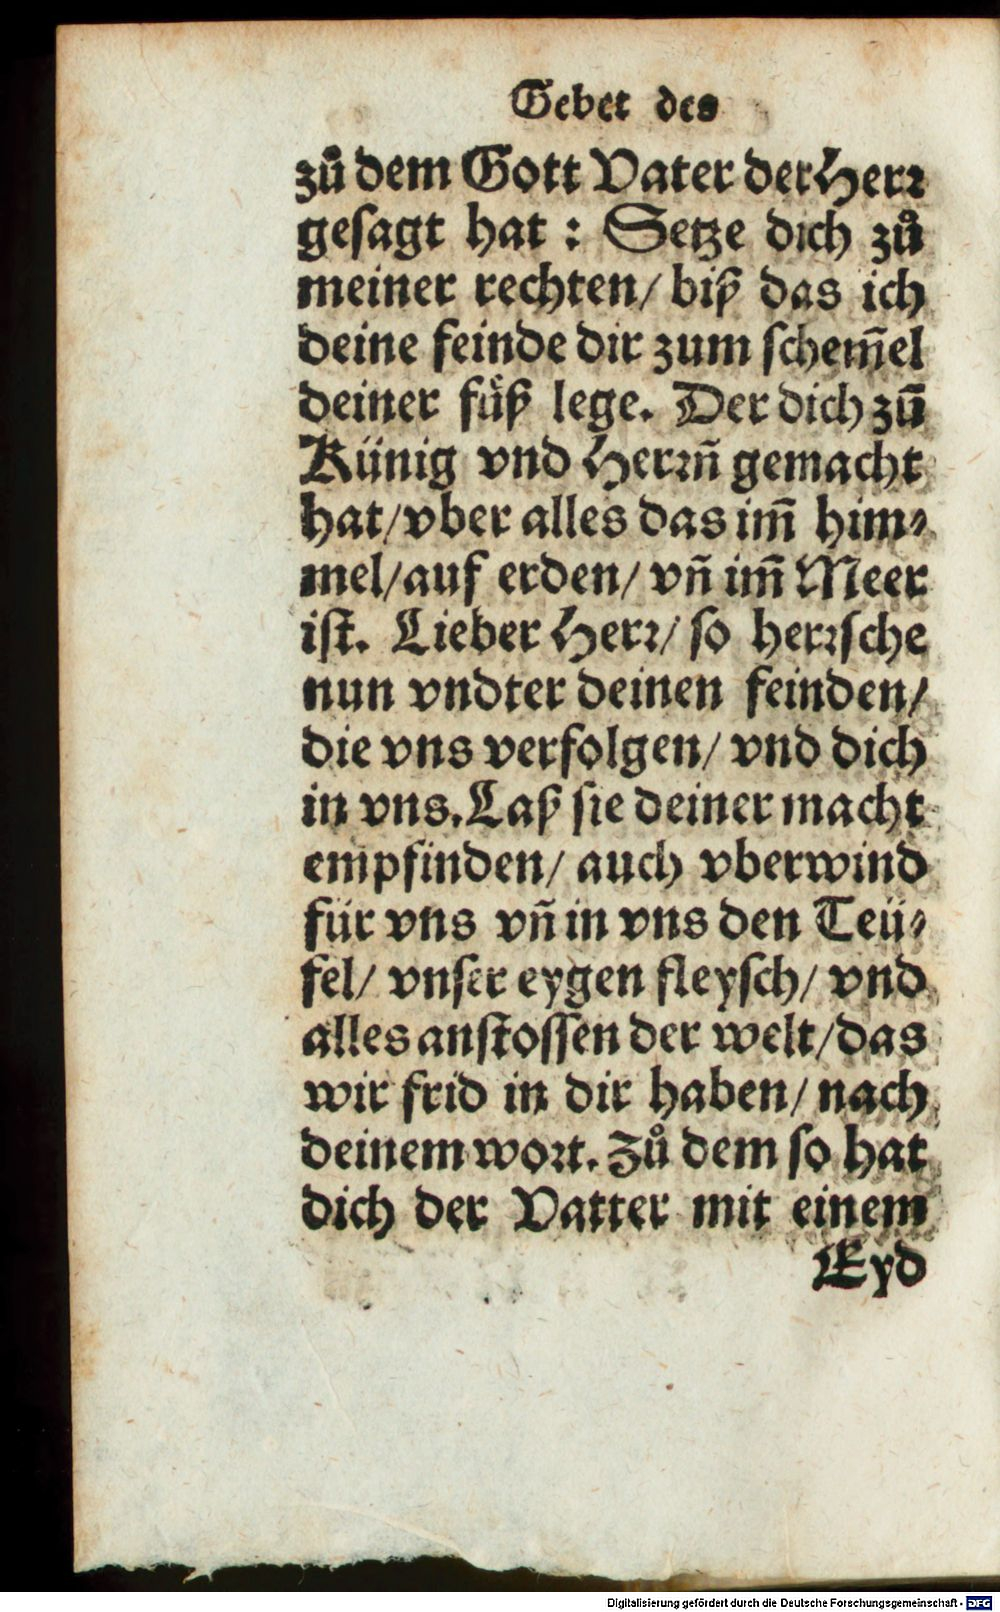 Gebet des
zů dem Gott Vater der Herꝛ
gesagt hat : Setze dich zů
meiner rechten/ biß das ich
deine feinde dir zum schem̃el
deiner fuͤß lege. Der dich zũ
Künig vnd Herꝛñ gemacht
hat/vber alles das im̃ him⸗
mel/auf erden/ vñ im̃ Meer
ist. Lieber Herꝛ/ so herꝛsche
nun vndter deinen feinden/
die vns verfolgen/ vnd dich
in vns. Laß sie deiner macht
empfinden/ auch vberwind
für vns vñ in vns den Teü⸗
fel/ vnser eygen fleysch/ vnd
alles anstossen der welt/das
wir frid in dir haben/ nach
deinem woꝛt. Zů dem so hat
dich der Vatter mit einem
Eyd
Digitalisierung gefördert durch die Deutsche Forschungsgemeinschaft - DFG